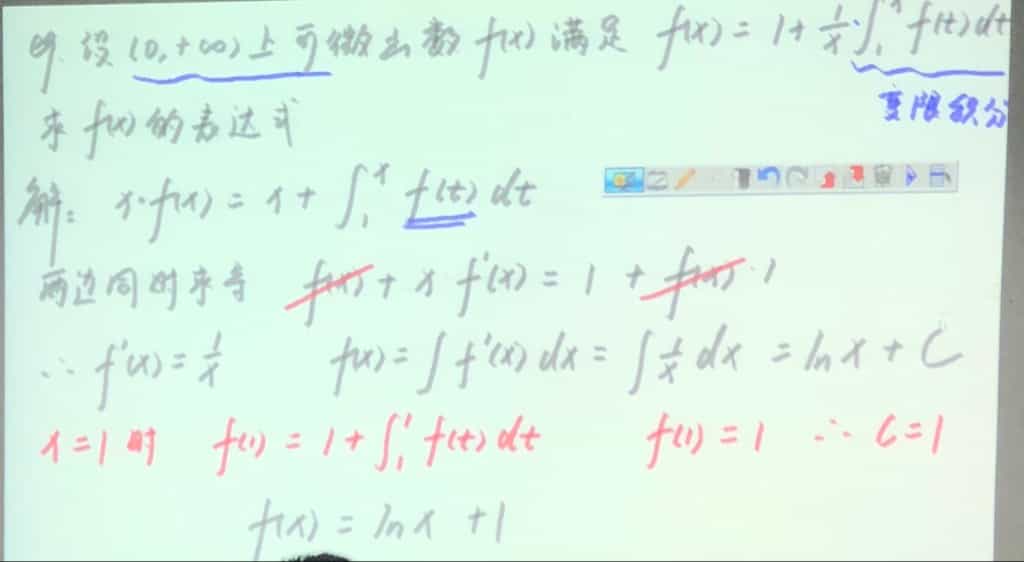 例. 设 (0,+∞) 上可微函数 f(x) 满足 f(x) = 1 + 1/x·∫₁ˣ f(t)dt
变限积分
求 f(x) 的表达式
解: x·f(x) = x + ∫₁ˣ f(t) dt
两边同时求导 f(x) + x f'(x) = 1 + f(x)·1
∴ f'(x) = 1/x f(x) = ∫ f'(x) dx = ∫ 1/x dx = ln x + C
x=1时 f(1) = 1 + ∫₁¹ f(t) dt f(1) = 1 ∴ C=1
f(x) = ln x + 1